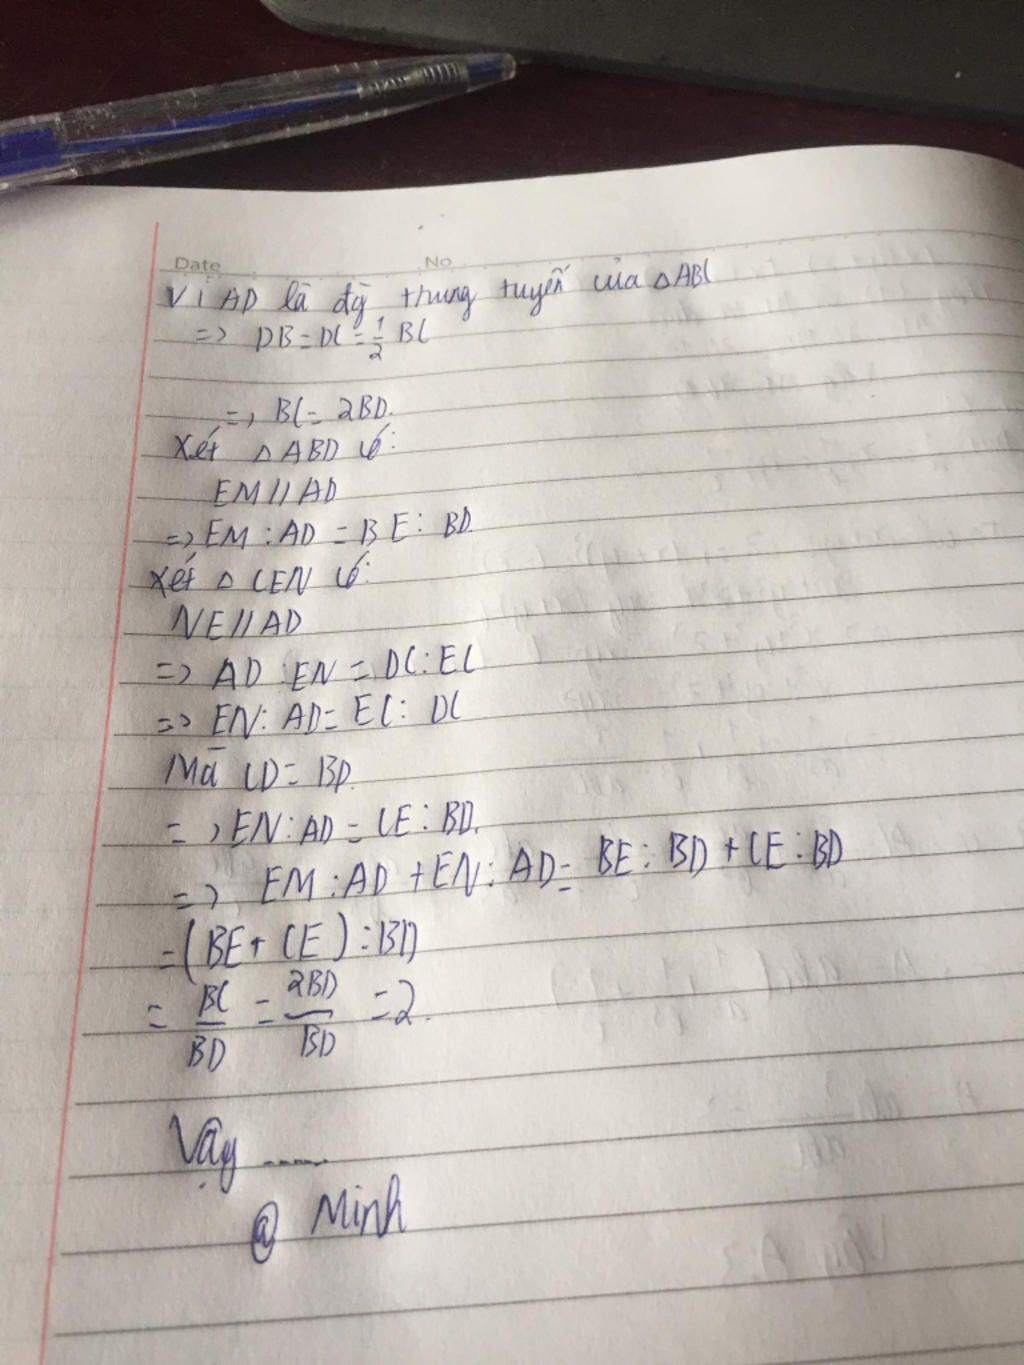 Date No
Vì AD là đg trung tuyến của △ABC
=> DB = DC = 1/2 BC
=> BC = 2BD.
Xét △ ABD có:
EM // AD
=> EM : AD = BE : BD
Xét △ CEN có:
NE // AD
=> AD : EN = DC : EC
=> EN : AD = EC : DC
Mà CD = BD.
=> EN : AD = CE : BD.
=> EM : AD + EN : AD = BE : BD + CE : BD
= (BE + CE) : BD
= BC/BD = 2BD/BD = 2.
Vậy ......
@ Minh